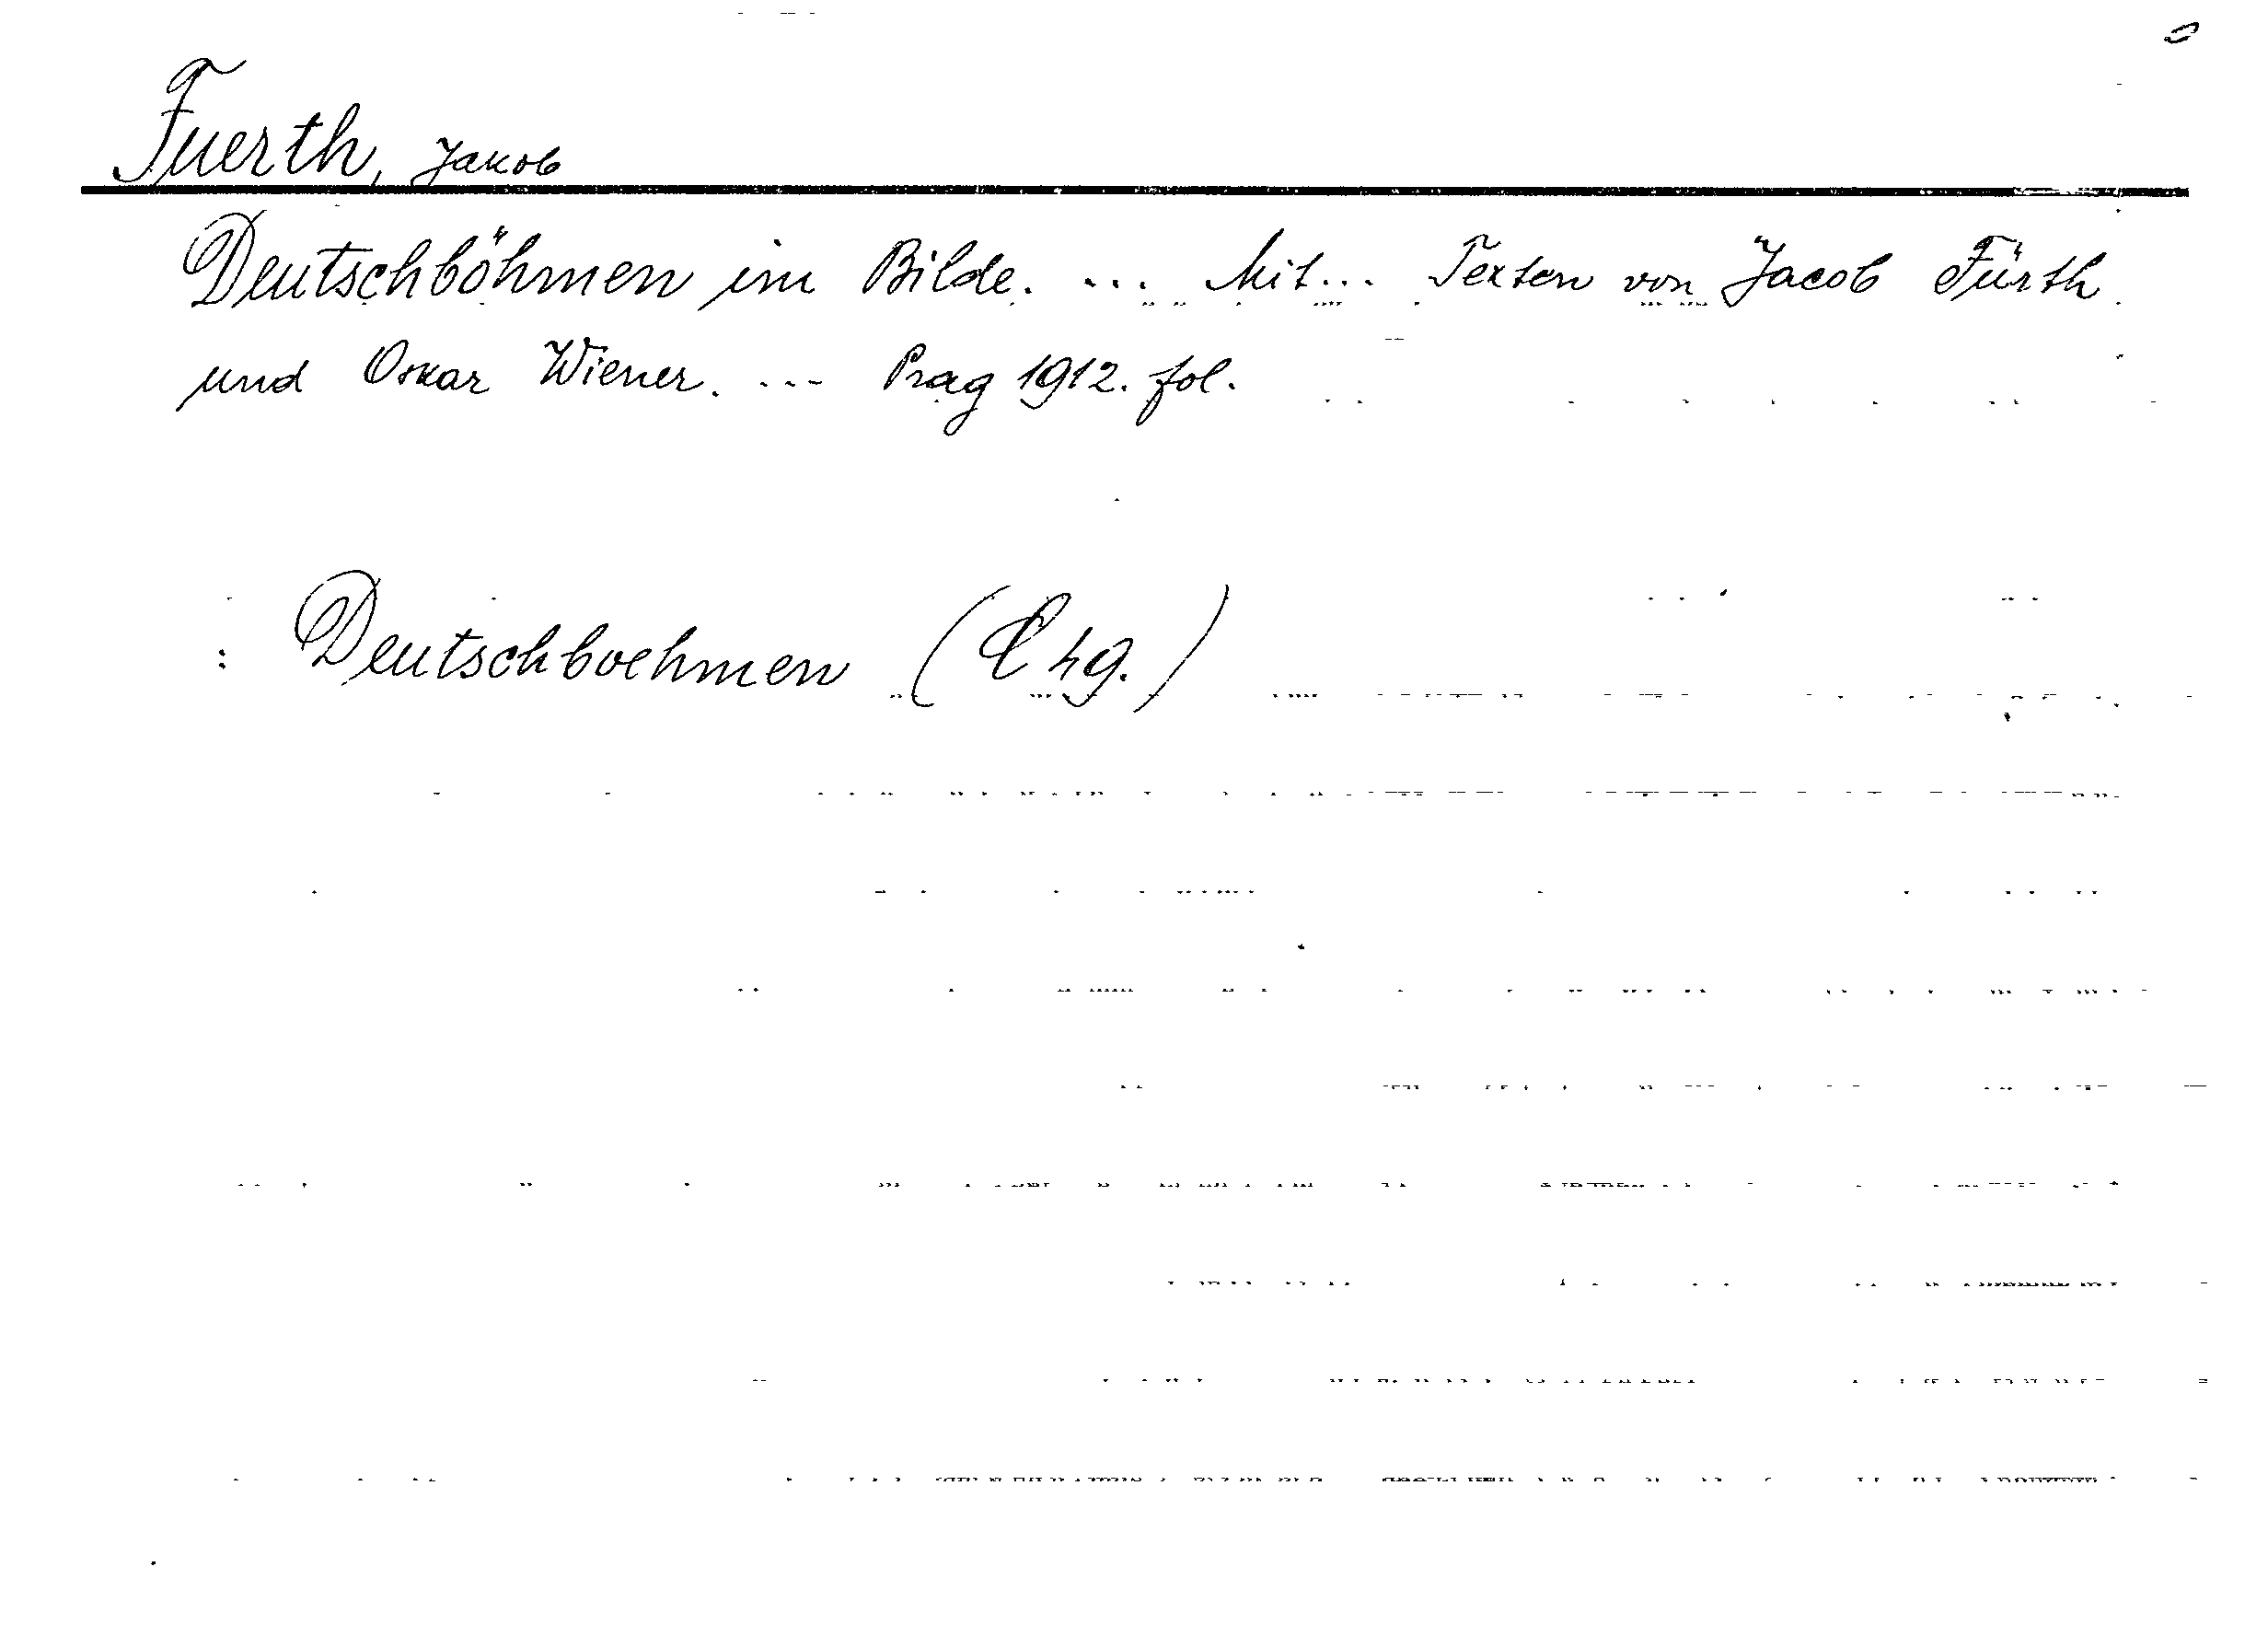 Fuerth, Jakob
Deutschböhmen im Bilde. ... Mit... Texten von Jacob Fürth
und Oskar Wiener. --- Prag 1912. fol.
: Deutschboehmen ( hg.)